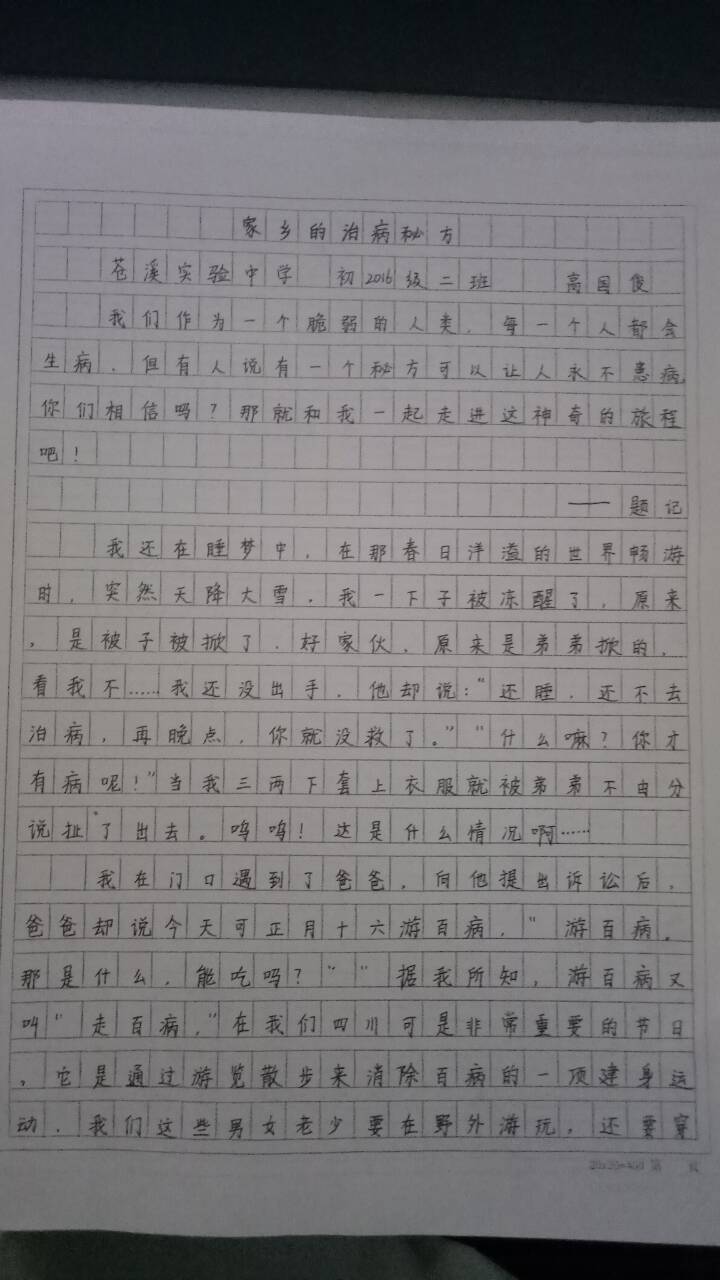 家乡的治病秘方
苍溪实验中学 初2016级二班 高国俊
我们作为一个脆弱的人类，每一个人都会
生病，但有人说有一个秘方可以让人永不患病
你们相信吗？那就和我一起走进这神奇的旅程
吧！
——题记
我还在睡梦中，在那春日洋溢的世界畅游
时，突然天降大雪，我一下子被冻醒了，原来
，是被子被掀了，好家伙，原来是弟弟掀的，
看我不……我还没出手，他却说：“还睡，还不去
治病，再晚点，你就没救了。”“什么嘛？你才
有病呢！”当我三两下套上衣服就被弟弟不由分
说扯了出去。呜呜！这是什么情况啊……
我在门口遇到了爸爸，向他提出诉讼后，
爸爸却说今天可正月十六游百病，“游百病。
那是什么，能吃吗？”“据我所知，游百病又
叫“走百病，”在我们四川可是非常重要的节日
，它是通过游览散步来消除百病的一项建身运
动，我们这些男女老少要在野外游玩，还要穿
20x20=400 第 页